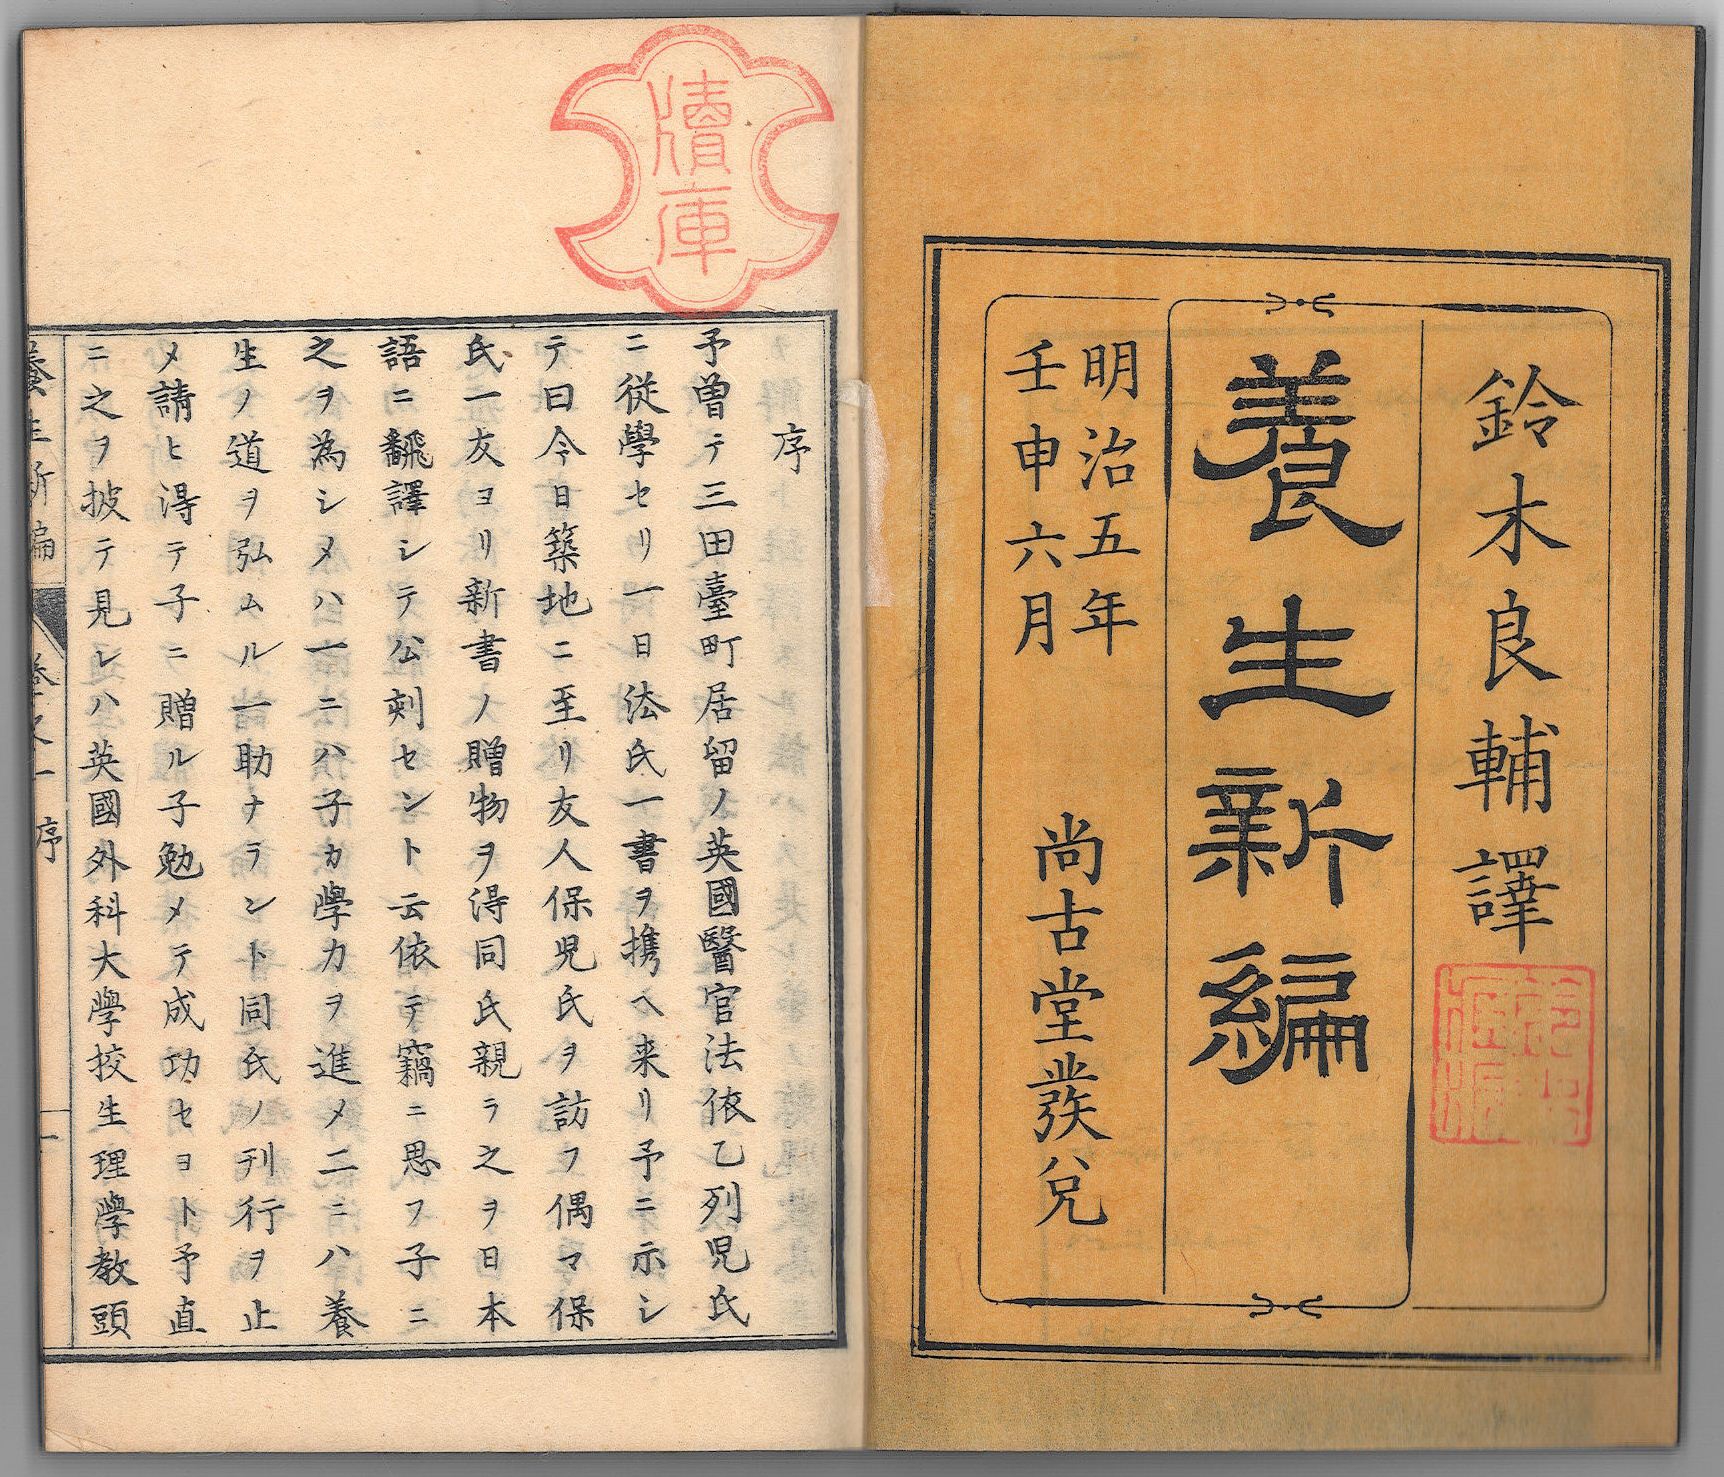 鈴木良輔譯
養生新編
明治五年
壬申六月
尚古堂發兌
牘庫
序
予曽テ三田臺町居留ノ英國醫官法依乙列児氏
ニ從學セリ一日法氏一書ヲ携ヘ来リ予ニ示シ
テ曰今日築地ニ至リ友人保児氏ヲ訪フ偶マ保
氏一友ヨリ新書ノ贈物ヲ得同氏親ラ之ヲ日本
語ニ飜譯シテ公刻セント云依テ竊ニ思フ子ニ
之ヲ為シメハ一ニハ子カ學力ヲ進メ二ニハ養
生ノ道ヲ弘ムル一助ナラント同氏ノ刋行ヲ止
メ請ヒ得テ子ニ贈ル子勉メテ成功セヨト予直
ニ之ヲ披テ見レハ英國外科大學校生理學教頭
養生新編
卷之一
序
一